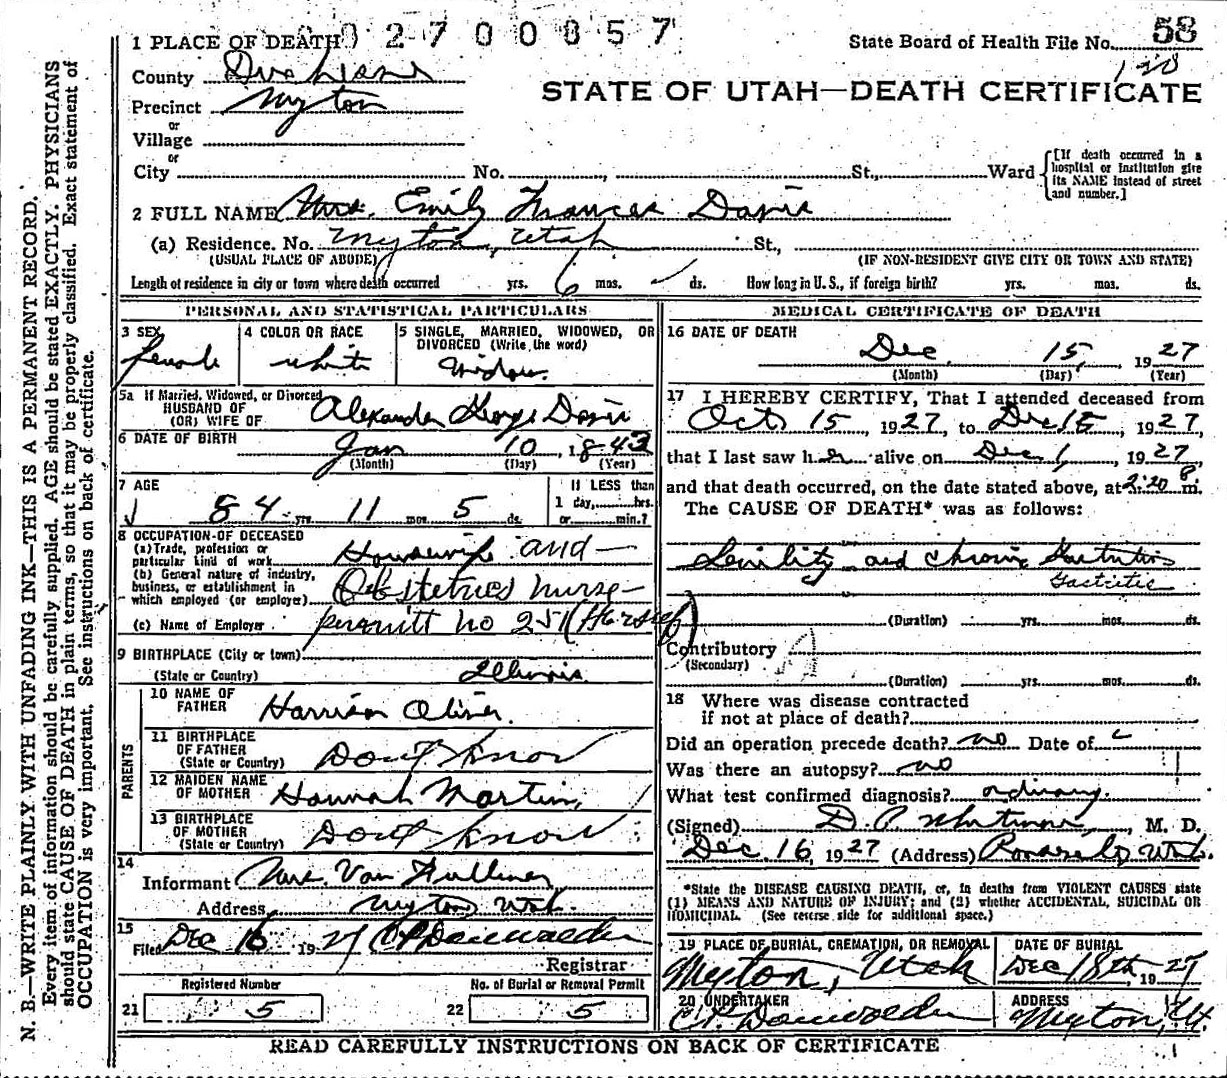 2700857
1 PLACE OF DEATH
State Board of Health File No. 58
County Duchesne
STATE OF UTAH—DEATH CERTIFICATE
Precinct Myton
or
Village
or
City No. , St., Ward
[If death occurred in a hospital or institution give its NAME instead of street and number.]
2 FULL NAME Mrs. Emily Frances Davis
(a) Residence. No. Myton, Utah St.,
(USUAL PLACE OF ABODE) (IF NON-RESIDENT GIVE CITY OR TOWN AND STATE)
Length of residence in city or town where death occurred yrs. 6 mos. ds. How long in U. S., if foreign birth? yrs. mos. ds.
PERSONAL AND STATISTICAL PARTICULARS
3 SEX 4 COLOR OR RACE 5 SINGLE, MARRIED, WIDOWED, OR
DIVORCED (Write the word)
female white Widow.
5a If Married, Widowed, or Divorced
HUSBAND OF
(OR) WIFE OF Alexander George Davis
6 DATE OF BIRTH
Jan 10, 1843
(Month) (Day) (Year)
7 AGE If LESS than
1 day, hrs.
84 yrs. 11 mos. 5 ds. or min.?
8 OCCUPATION OF DECEASED
(a) Trade, profession or
particular kind of work Housewife and
(b) General nature of industry,
business, or establishment in
which employed (or employer) Obstetrics nurse
(c) Name of Employer permitt no 251
9 BIRTHPLACE (City or town)
(State or Country) Illinois.
PARENTS
10 NAME OF
FATHER Harrison Oliver.
11 BIRTHPLACE
OF FATHER
(State or Country) Dont know
12 MAIDEN NAME
OF MOTHER Hannah Martin,
13 BIRTHPLACE
OF MOTHER
(State or Country) Dont know
14
Informant Mrs. Van Fulliner
Address Myton Utah.
15
Filed Dec 16 1927
Registrar
Registered Number No. of Burial or Removal Permit
21 5 22 5
MEDICAL CERTIFICATE OF DEATH
16 DATE OF DEATH
Dec. 15, 1927
(Month) (Day) (Year)
17 I HEREBY CERTIFY, That I attended deceased from
Oct 15, 1927, to Dec 15, 1927,
that I last saw her alive on Dec 1, 1927,
and that death occurred, on the date stated above, at 2:20 m.
The CAUSE OF DEATH* was as follows:
Senility and chronic Gastritis
Gastritis
(Duration) yrs. mos. ds.
Contributory
(Secondary)
(Duration) yrs. mos. ds.
18 Where was disease contracted
if not at place of death?
Did an operation precede death? no Date of
Was there an autopsy? no
What test confirmed diagnosis? ordinary.
(Signed) D. P. Whitmore, M. D.
Dec. 16, 1927 (Address) Roosevelt, Utah.
*State the DISEASE CAUSING DEATH, or, in deaths from VIOLENT CAUSES state
(1) MEANS AND NATURE OF INJURY; and (2) whether ACCIDENTAL, SUICIDAL OR
HOMICIDAL. (See reverse side for additional space.)
19 PLACE OF BURIAL, CREMATION, OR REMOVAL DATE OF BURIAL
Myton, Utah Dec 18th, 1927
20 UNDERTAKER ADDRESS
Myton, Ut.
READ CAREFULLY INSTRUCTIONS ON BACK OF CERTIFICATE
N. B.—WRITE PLAINLY WITH UNFADING INK—THIS IS A PERMANENT RECORD.
Every item of information should be carefully supplied. AGE should be stated EXACTLY. PHYSICIANS
should state CAUSE OF DEATH in plain terms, so that it may be properly classified. Exact statement of
OCCUPATION is very important. See instructions on back of certificate.